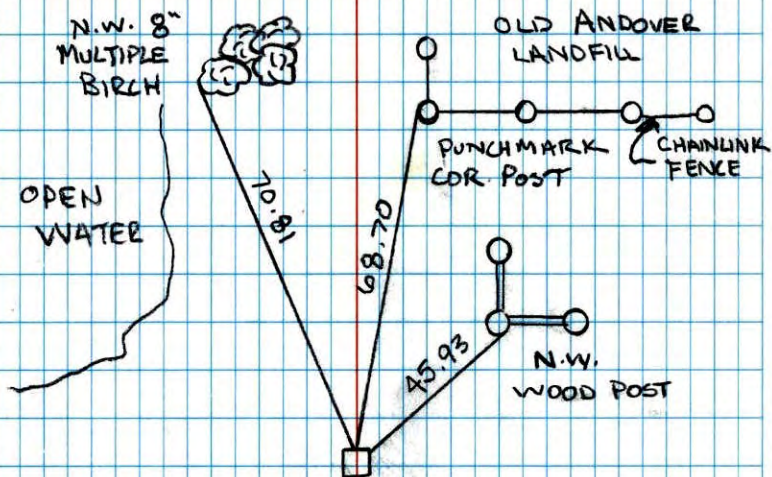 N.W. 8"
MULTIPLE
BIRCH
OLD ANDOVER
LANDFILL
PUNCHMARK
COR. POST
CHAINLINK
FENCE
OPEN
WATER
70.81
68.70
45.93
N.W.
WOOD POST